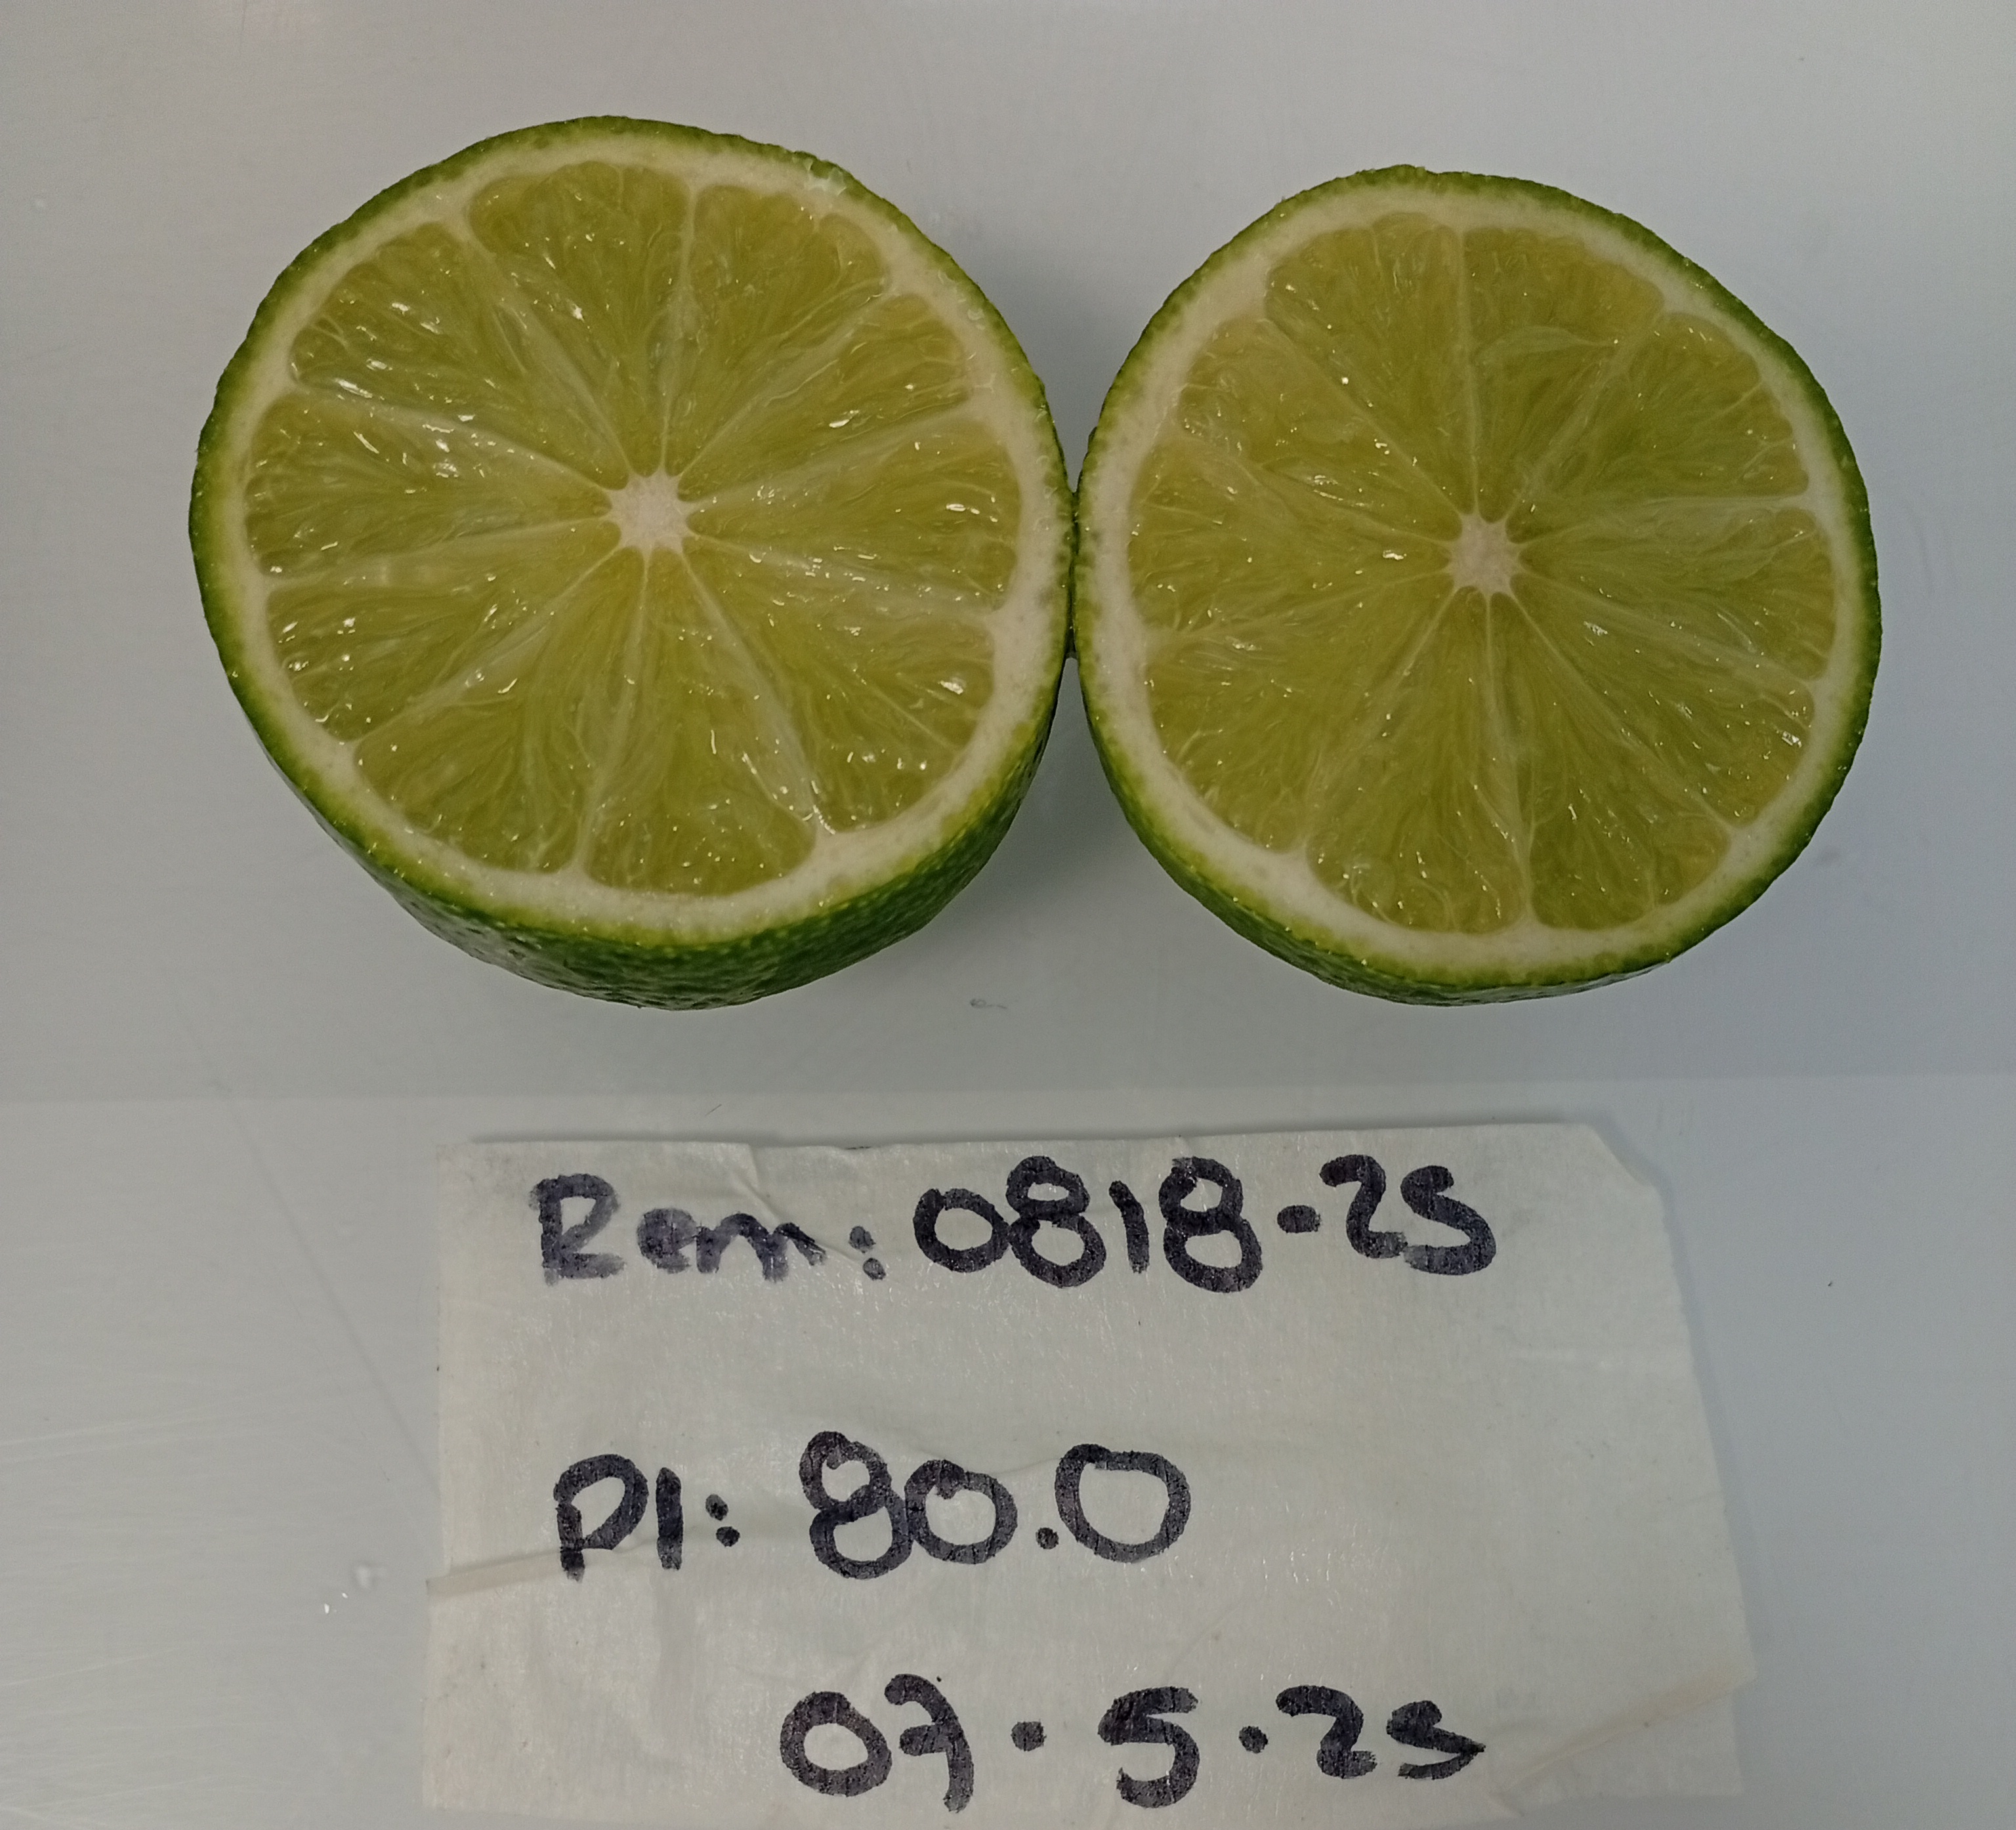 Rem: 0818-25
PI: 80.0
07.5.25